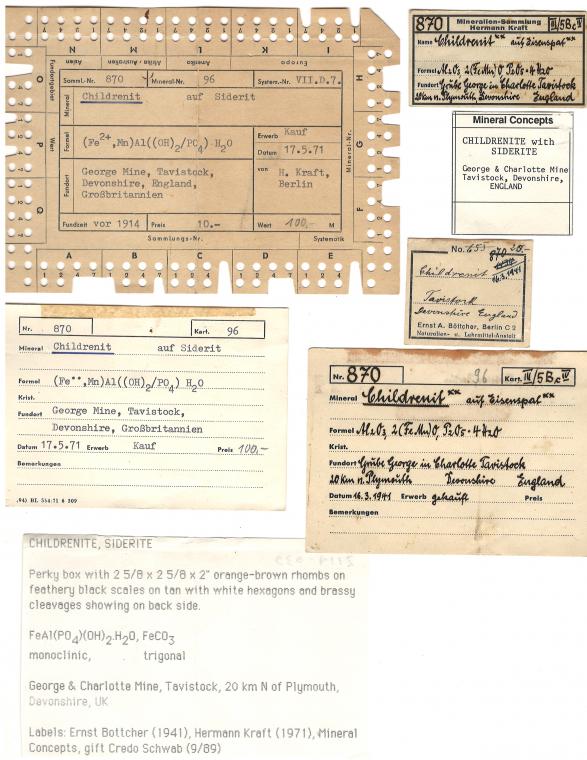 I K L M N
Europa Amerika Afrika Australien Asien
Samml.-Nr. 870 Mineral-Nr. 96 System.-Nr. VII.D.7.
Mineral Childrenit auf Siderit
Formel (Fe2+,Mn)Al((OH)2/PO4)·H2O
Erwerb Kauf
Datum 17.5.71
Fundort George Mine, Tavistock,
Devonshire, England,
Großbritannien
von H. Kraft,
Berlin
Fundzeit vor 1914 Preis 10.— Wert 100,- M
Sammlungs-Nr. Systematik
A B C D E
Fundortgebiet O
Wert P
Q
H
Mineral-Nr. G
F
870 Mineralien-Sammlung
Hermann Kraft III/5B,c IV
Name Childrenit xx auf Eisenspat xx
Formel Al2O3, 2(Fe.Mn)O P2O5·4H2O
Fundort Grube George in Charlotte Tavistock
20km n. Plymouth, Devonshire England
Mineral Concepts
CHILDRENITE with
SIDERITE
George & Charlotte Mine
Tavistock, Devonshire,
ENGLAND
No. 653 870
16.3.1941
Childrenit
Tavistock
Devonshire England
Ernst A. Böttcher, Berlin C 2
Naturalien- u. Lehrmittel-Anstalt
Nr. 870 Kart. 96
Mineral Childrenit auf Siderit
Formel (Fe••,Mn)Al((OH)2/PO4) H2O
Krist.
Fundort George Mine, Tavistock,
Devonshire, Großbritannien
Datum 17.5.71 Erwerb Kauf Preis 100,-
Bemerkungen
(94) BL 554/71 6 209
Nr. 870 96 Kart. IV/5B,c IV
Mineral Childrenit xx auf Eisenspat xx
Formel Al2O3, 2(Fe.Mn)O, P2O5·4H2O
Krist.
Fundort Grube George in Charlotte Tavistock
20km n. Plymouth Devonshire England
Datum 16.3.1941 Erwerb gekauft Preis
Bemerkungen
CHILDRENITE, SIDERITE
Perky box with 2 5/8 x 2 5/8 x 2" orange-brown rhombs on
feathery black scales on tan with white hexagons and brassy
cleavages showing on back side.
FeAl(PO4)(OH)2.H2O, FeCO3
monoclinic, trigonal
George & Charlotte Mine, Tavistock, 20 km N of Plymouth,
Devonshire, UK
Labels: Ernst Bottcher (1941), Hermann Kraft (1971), Mineral
Concepts, gift Credo Schwab (9/89)